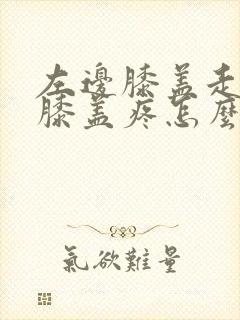 左邊膝盖走
膝盖疼怎麼
氣欲難量